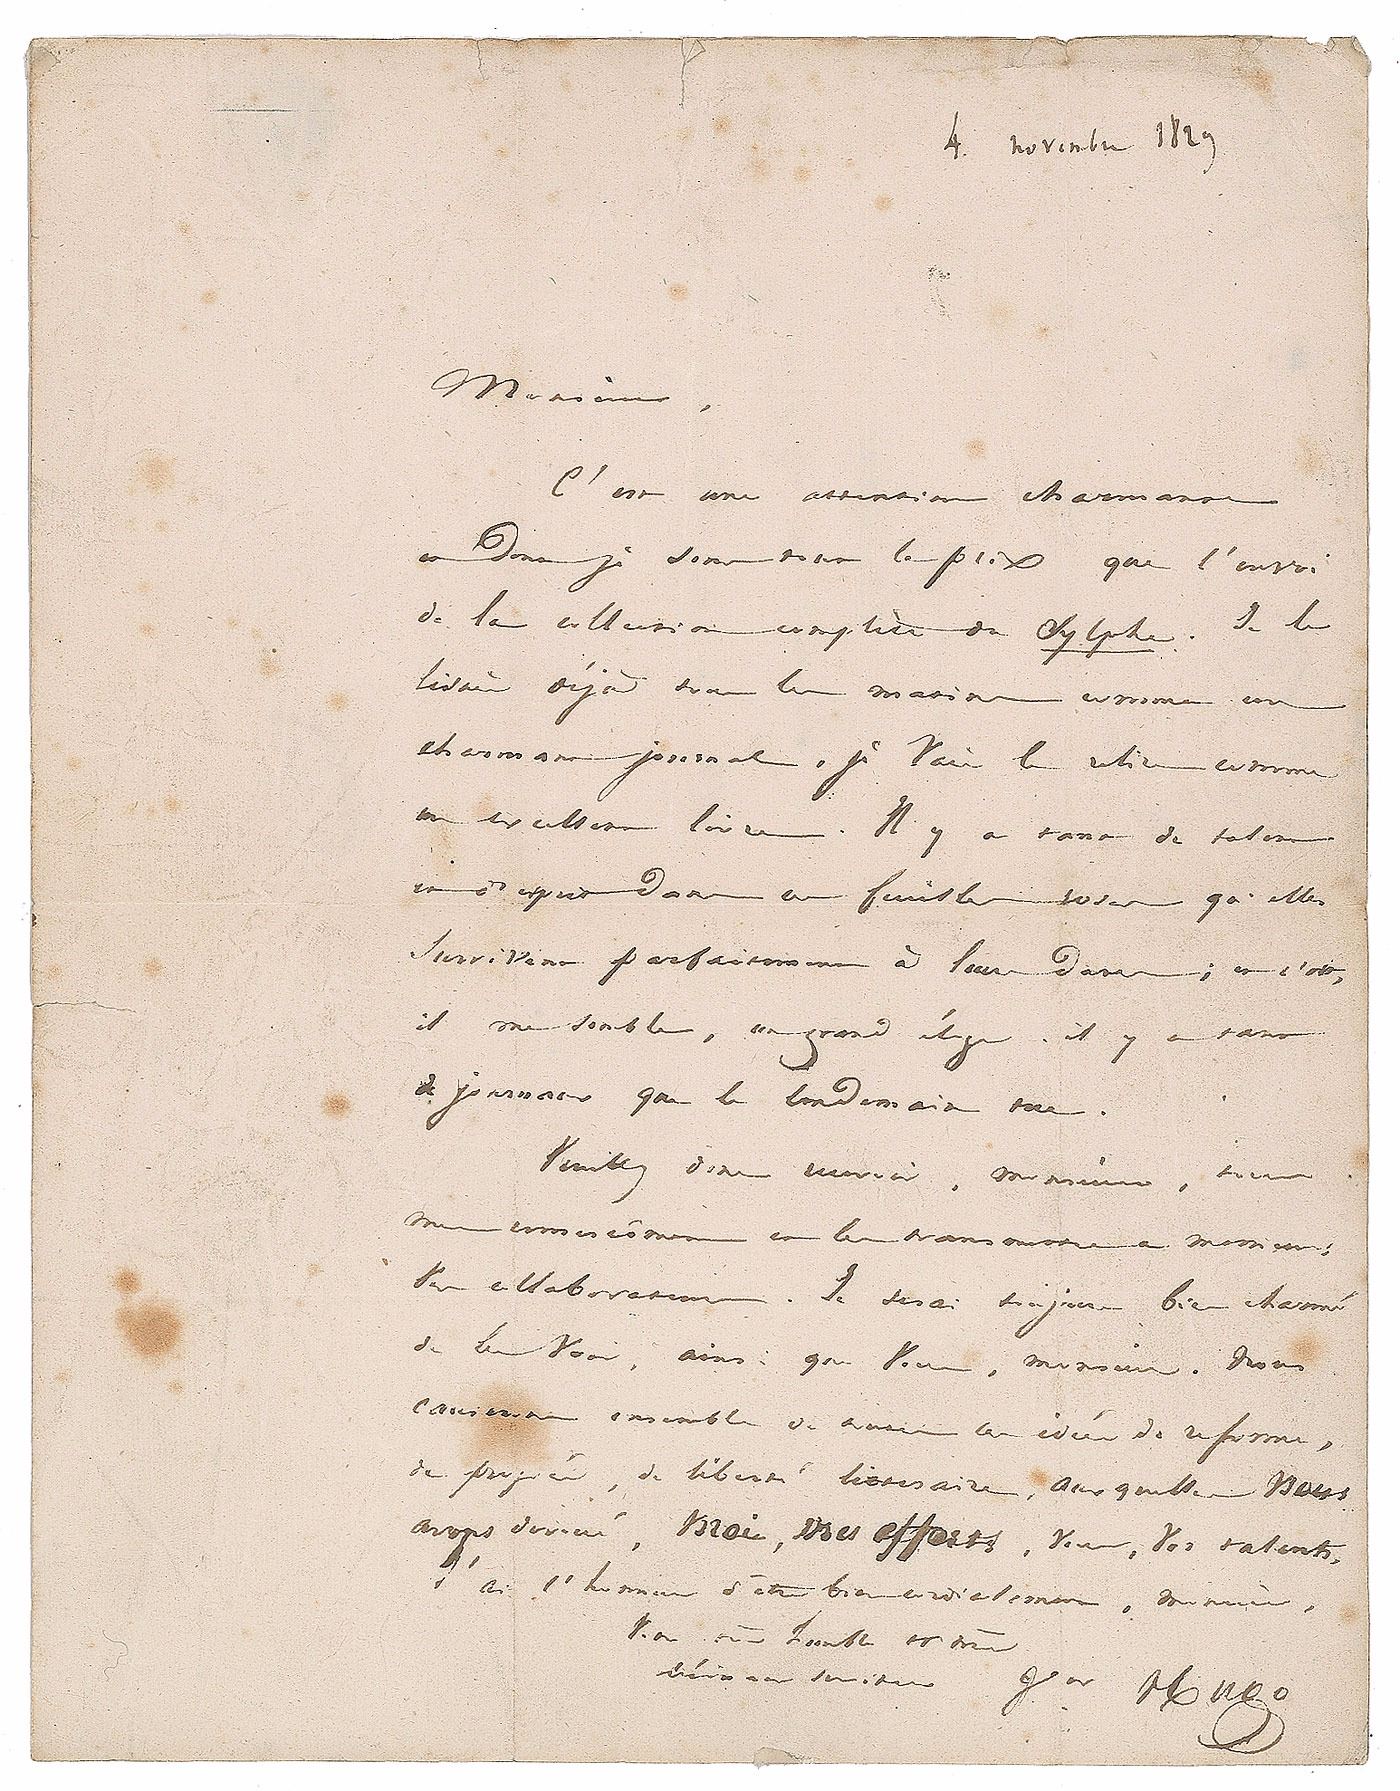 4 novembre 1829
Monsieur,
C'est une attention charmante
et dont je sens tout le prix que l'envoi
de la collection complète du Sylphe. Je le
lisais déjà tous les matins comme un
charmant journal, je vais le relire comme
un excellent livre. Il y a tant de talent
et d'esprit dans ces feuilles roses qu'elles
survivent parfaitement à leur date ; et c'est,
il me semble, un grand éloge. il y a tant
de journaux que le lendemain tue.
Veuillez donc recevoir, monsieur, tous
mes remerciements et les transmettre à messieurs
vos collaborateurs. Je serai toujours bien charmé
de les voir, ainsi que vous, monsieur. Nous
causerons ensemble de toutes les idées de réforme,
de progrès, de liberté littéraire, auxquelles nous
avons dévoué, moi, mes efforts, vous, vos talents.
J'ai l'honneur d'être bien cordialement, monsieur,
Votre très humble et très
obéissant serviteur Vor Hugo